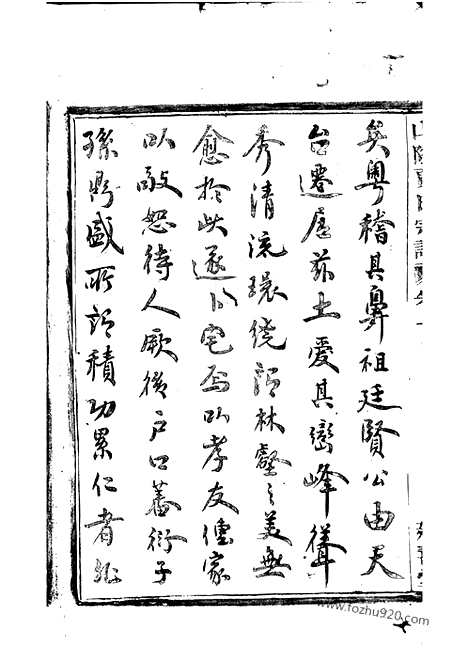 矣粵稽其鼻祖廷賢公由天
台遷居茲土愛其巒峰聳
秀清流環繞謂林壑之美無
愈於此遂卜宅焉以孝友傳家
以敬恕待人厥後戶口蕃衍子
孫昌盛所謂積功累仁者非
www.fozhu920.com